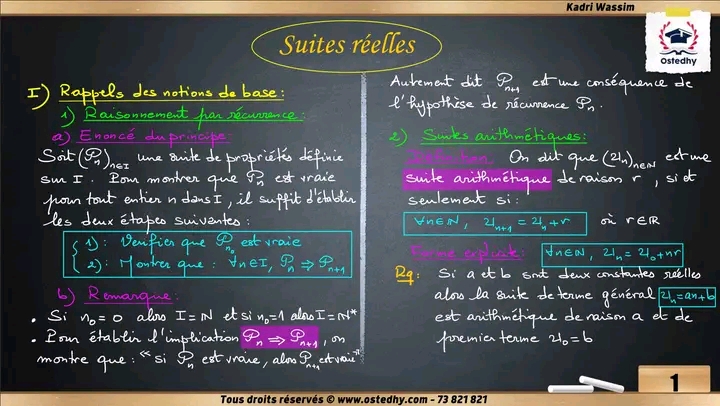 Kadri Wassim
Ostedhy
Suites réelles
I) Rappels des notions de base :
1) Raisonnement par récurrence :
a) Enoncé du principe :
Soit (Pn)n∈I une suite de propriétés définie
sur I. Pour montrer que Pn est vraie
pour tout entier n dans I, il suffit d'établir
les deux étapes suivantes :
1) : Vérifier que Pn₀ est vraie
2) : Montrer que : ∀n∈I, Pn ⇒ Pn+1
b) Remarque :
• Si n₀ = 0 alors I = ℕ et si n₀=1 alors I = ℕ*
• Pour établir l'implication Pn ⇒ Pn+1, on
montre que : "si Pn est vraie, alors Pn+1 est vraie"
Autrement dit Pn+1 est une conséquence de
l'hypothèse de récurrence Pn.
2) Suites arithmétiques :
Définition On dit que (Un)n∈ℕ est une
suite arithmétique de raison r, si et
seulement si :
∀n∈ℕ, Un+1 = Un + r où r∈ℝ
Forme explicite : ∀n∈ℕ, Un = U0 + nr
Rq : Si a et b sont deux constantes réelles
alors la suite de terme général Un = an+b
est arithmétique de raison a et de
premier terme U0 = b
1
Tous droits réservés © www.ostedhy.com - 73 821 821